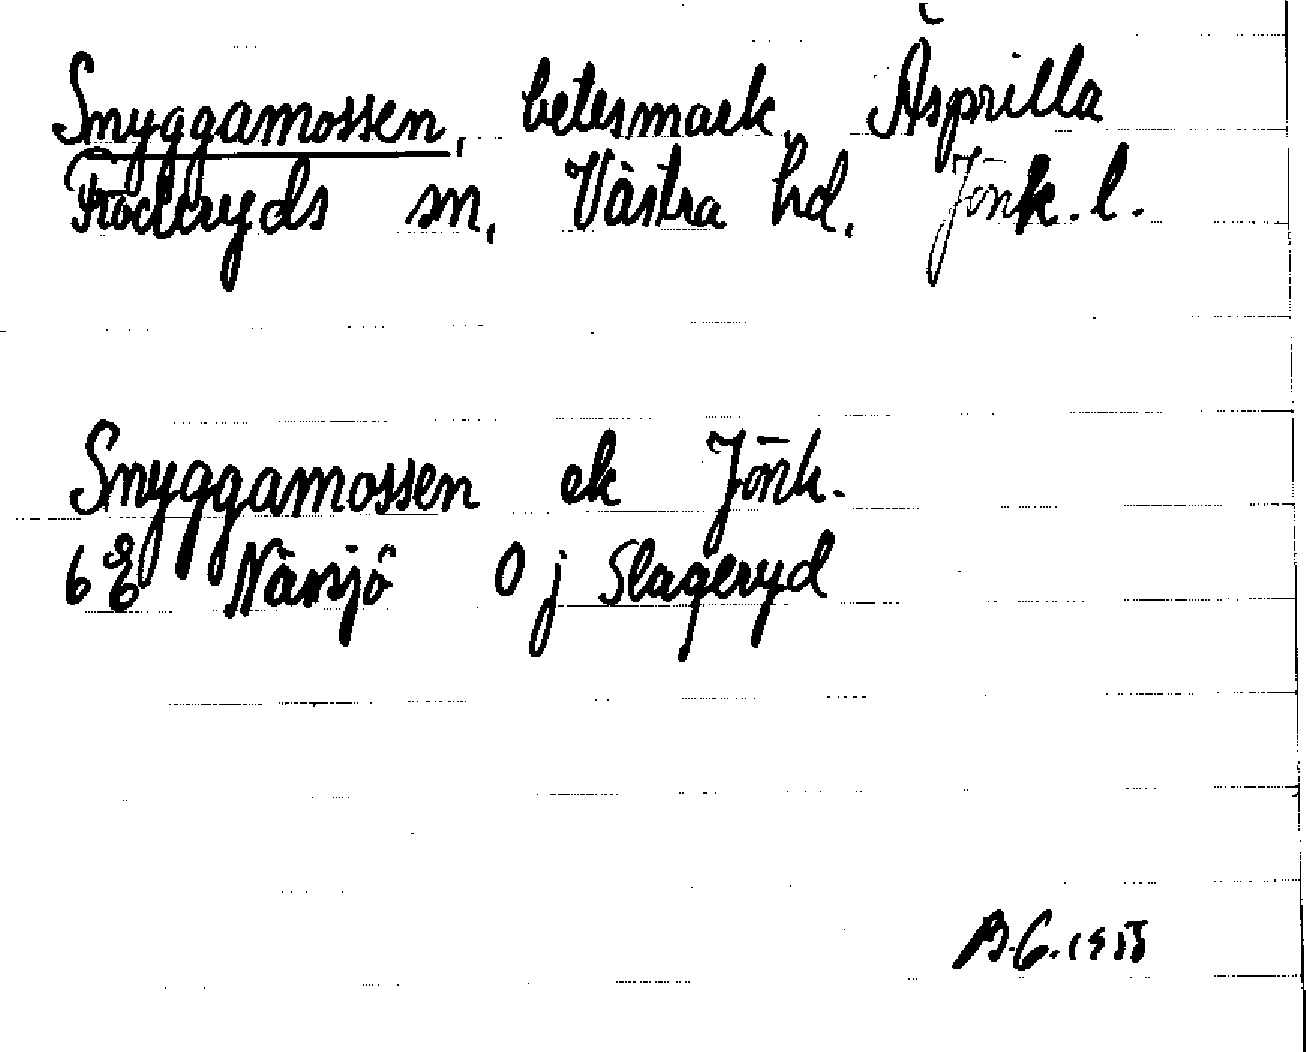 Snyggamossen, betesmark, Äsprilla
Fröderyds sn, Västra hd. Jönk. l.
Snyggamossen ek Jönk.
6E Nässjö 0 j Slageryd
B.G. 1955